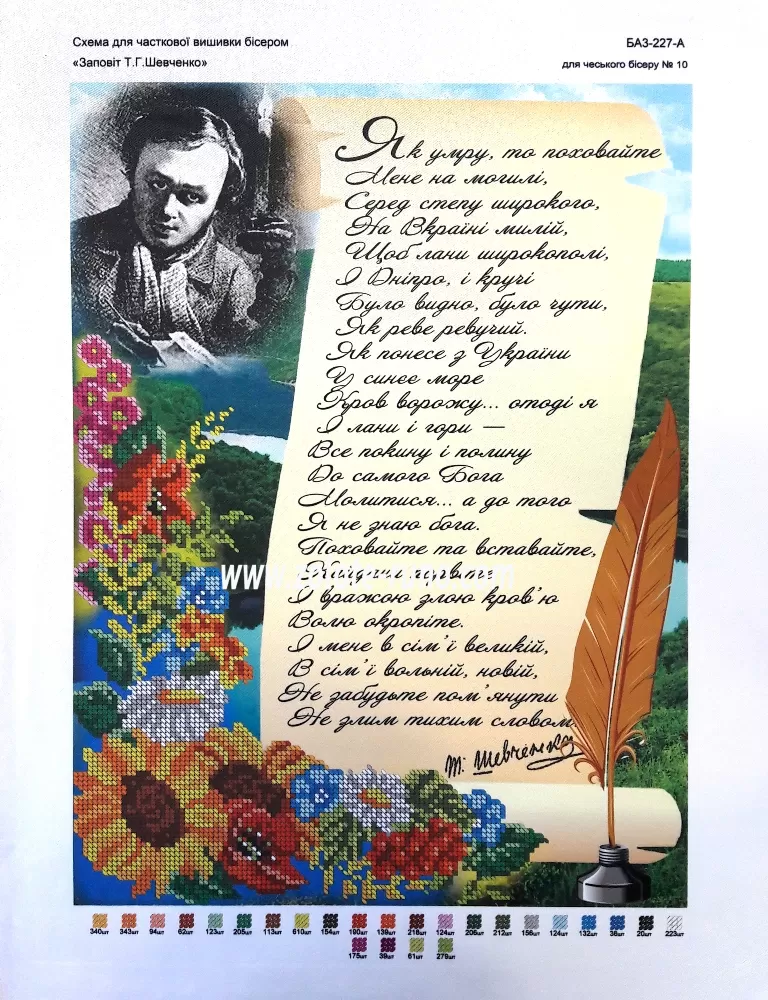 Схема для часткової вишивки бісером
БАЗ-227-А
«Заповіт Т.Г.Шевченко»
для чеського бісеру № 10
Як умру, то поховайте
Мене на могилі,
Серед степу широкого,
На Вкраїні милій,
Щоб лани широкополі,
І Дніпро, і кручі
Було видно, було чути,
Як реве ревучий.
Як понесе з України
У синєє море
Кров ворожу... отоді я
І лани і гори —
Все покину і полину
До самого Бога
Молитися... а до того
Я не знаю бога.
Поховайте та вставайте,
Кайдани порвіте
І вражою злою кров'ю
Волю окропіте.
І мене в сім'ї великій,
В сім'ї вольній, новій,
Не забудьте пом'янути
Не злим тихим словом.
Т. Шевченко
340шт 343шт 94шт 62шт 123шт 205шт 113шт 610шт 154шт 190шт 139шт 218шт 124шт 206шт 212шт 156шт 124шт 132шт 36шт 20шт 223шт
175шт 39шт 61шт 279шт